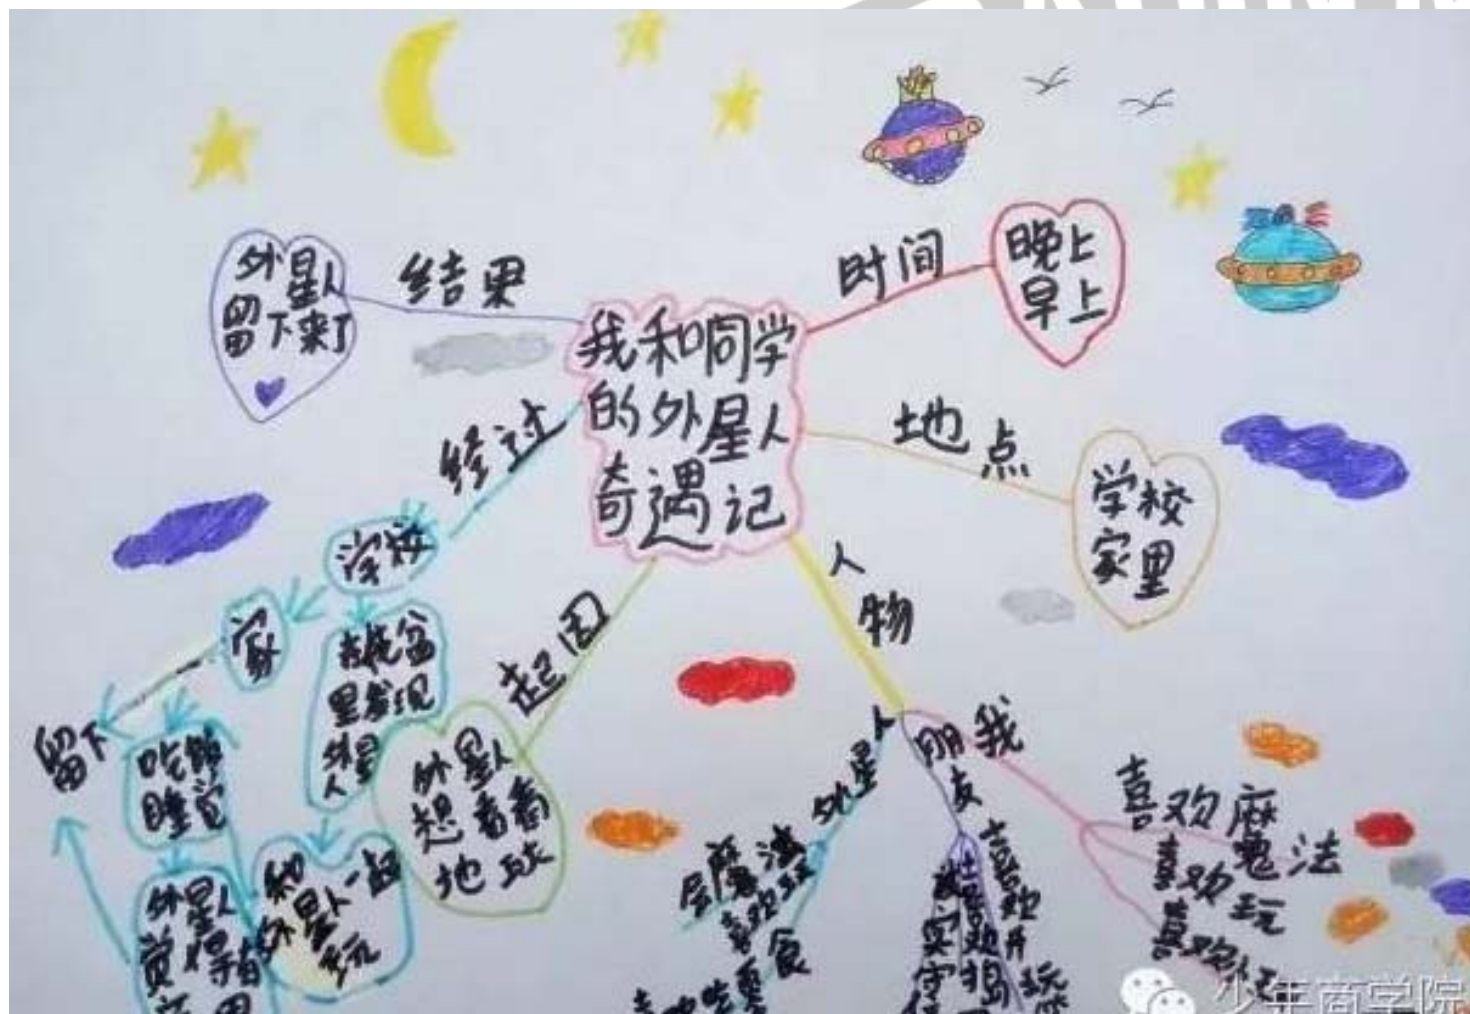 我和同学
的外星人
奇遇记
时间
晚上
早上
地点
学校
家里
人物
我
喜欢魔法
喜欢玩
喜欢
朋友
喜欢
外星人
魔法
喜欢
起因
外星人
想看看
地球
经过
学校
花盆
里发现
外星
人
和
外星人一起
玩
家
吃饭
睡觉
外星人
觉得
留下
结果
外星人
留下来了
少年商学院